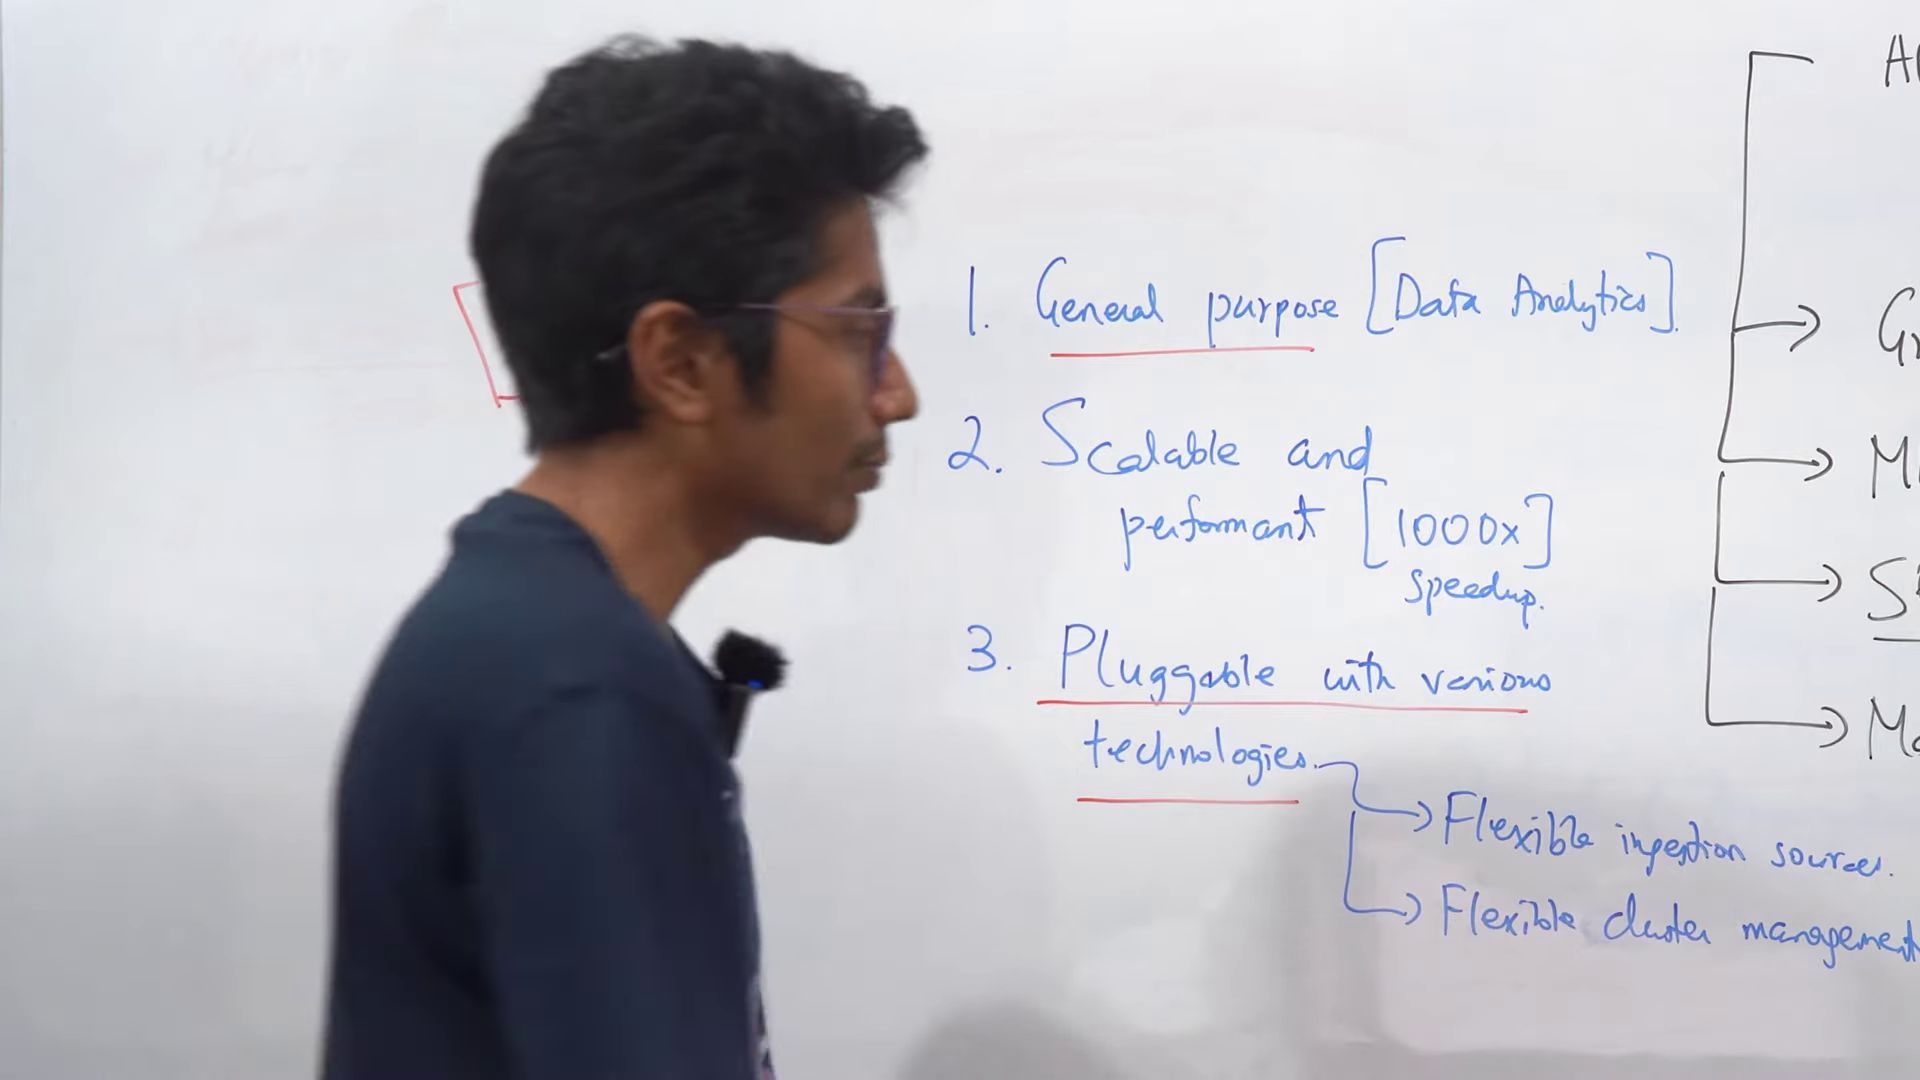 1. General purpose [Data Analytics].
2. Scalable and
performant [1000x]
speedup.
3. Pluggable with various
technologies.
Flexible ingestion sources.
Flexible cluster management